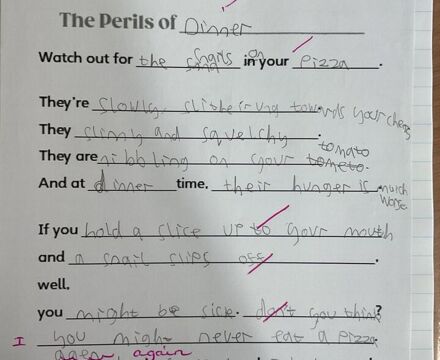 The Perils of Dinner
Watch out for the snails on in your pizza.
They're slowly slithering towards your cheese
They slimy and squelchy.
They are nibbling on your tomato tometo.
And at dinner time. their hunger is much worse.
If you hold a slice up to your mouth
and a snail slips off.
well.
you might be sick. don't you think?
I you might never eat a pizza
again again